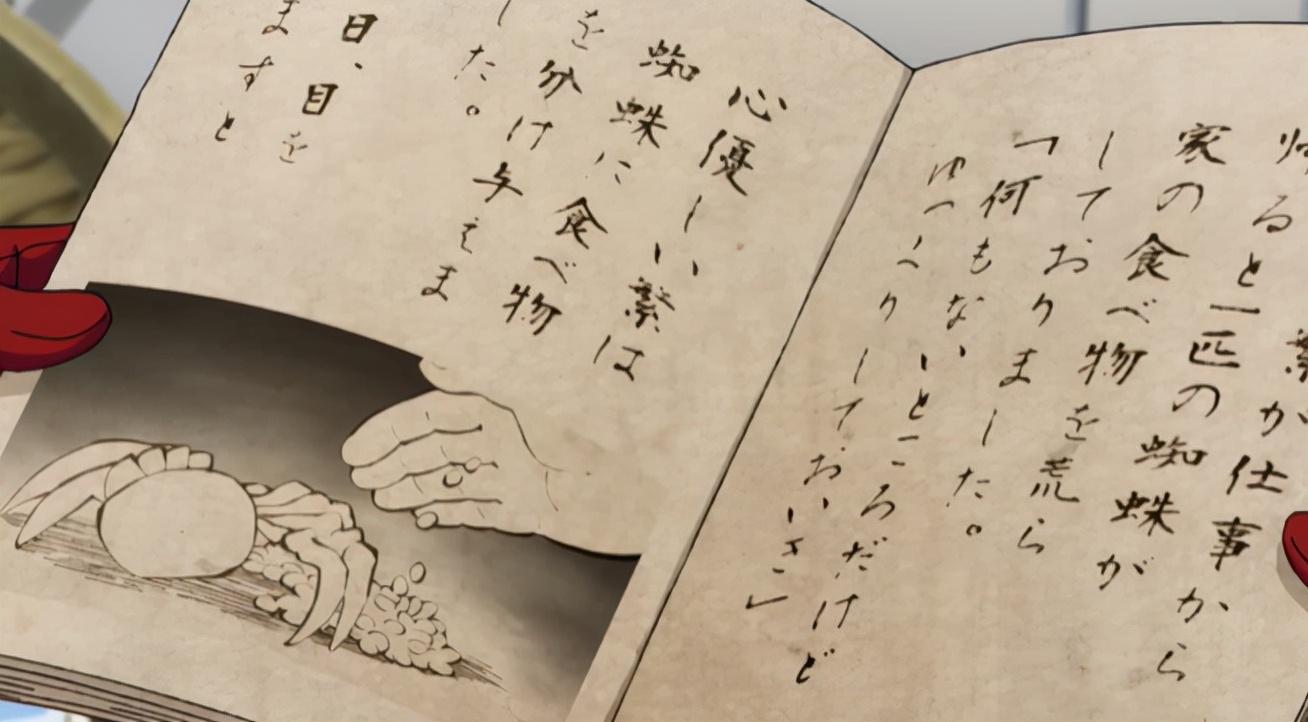 繋が仕事から
帰ると一匹の蜘蛛が
家の食べ物を荒ら
しておりました。
「何もないところだけど
ゆっくりしておいき」
心優しい繋は
蜘蛛に食べ物
を分け与えま
した。
日、目を
ますと